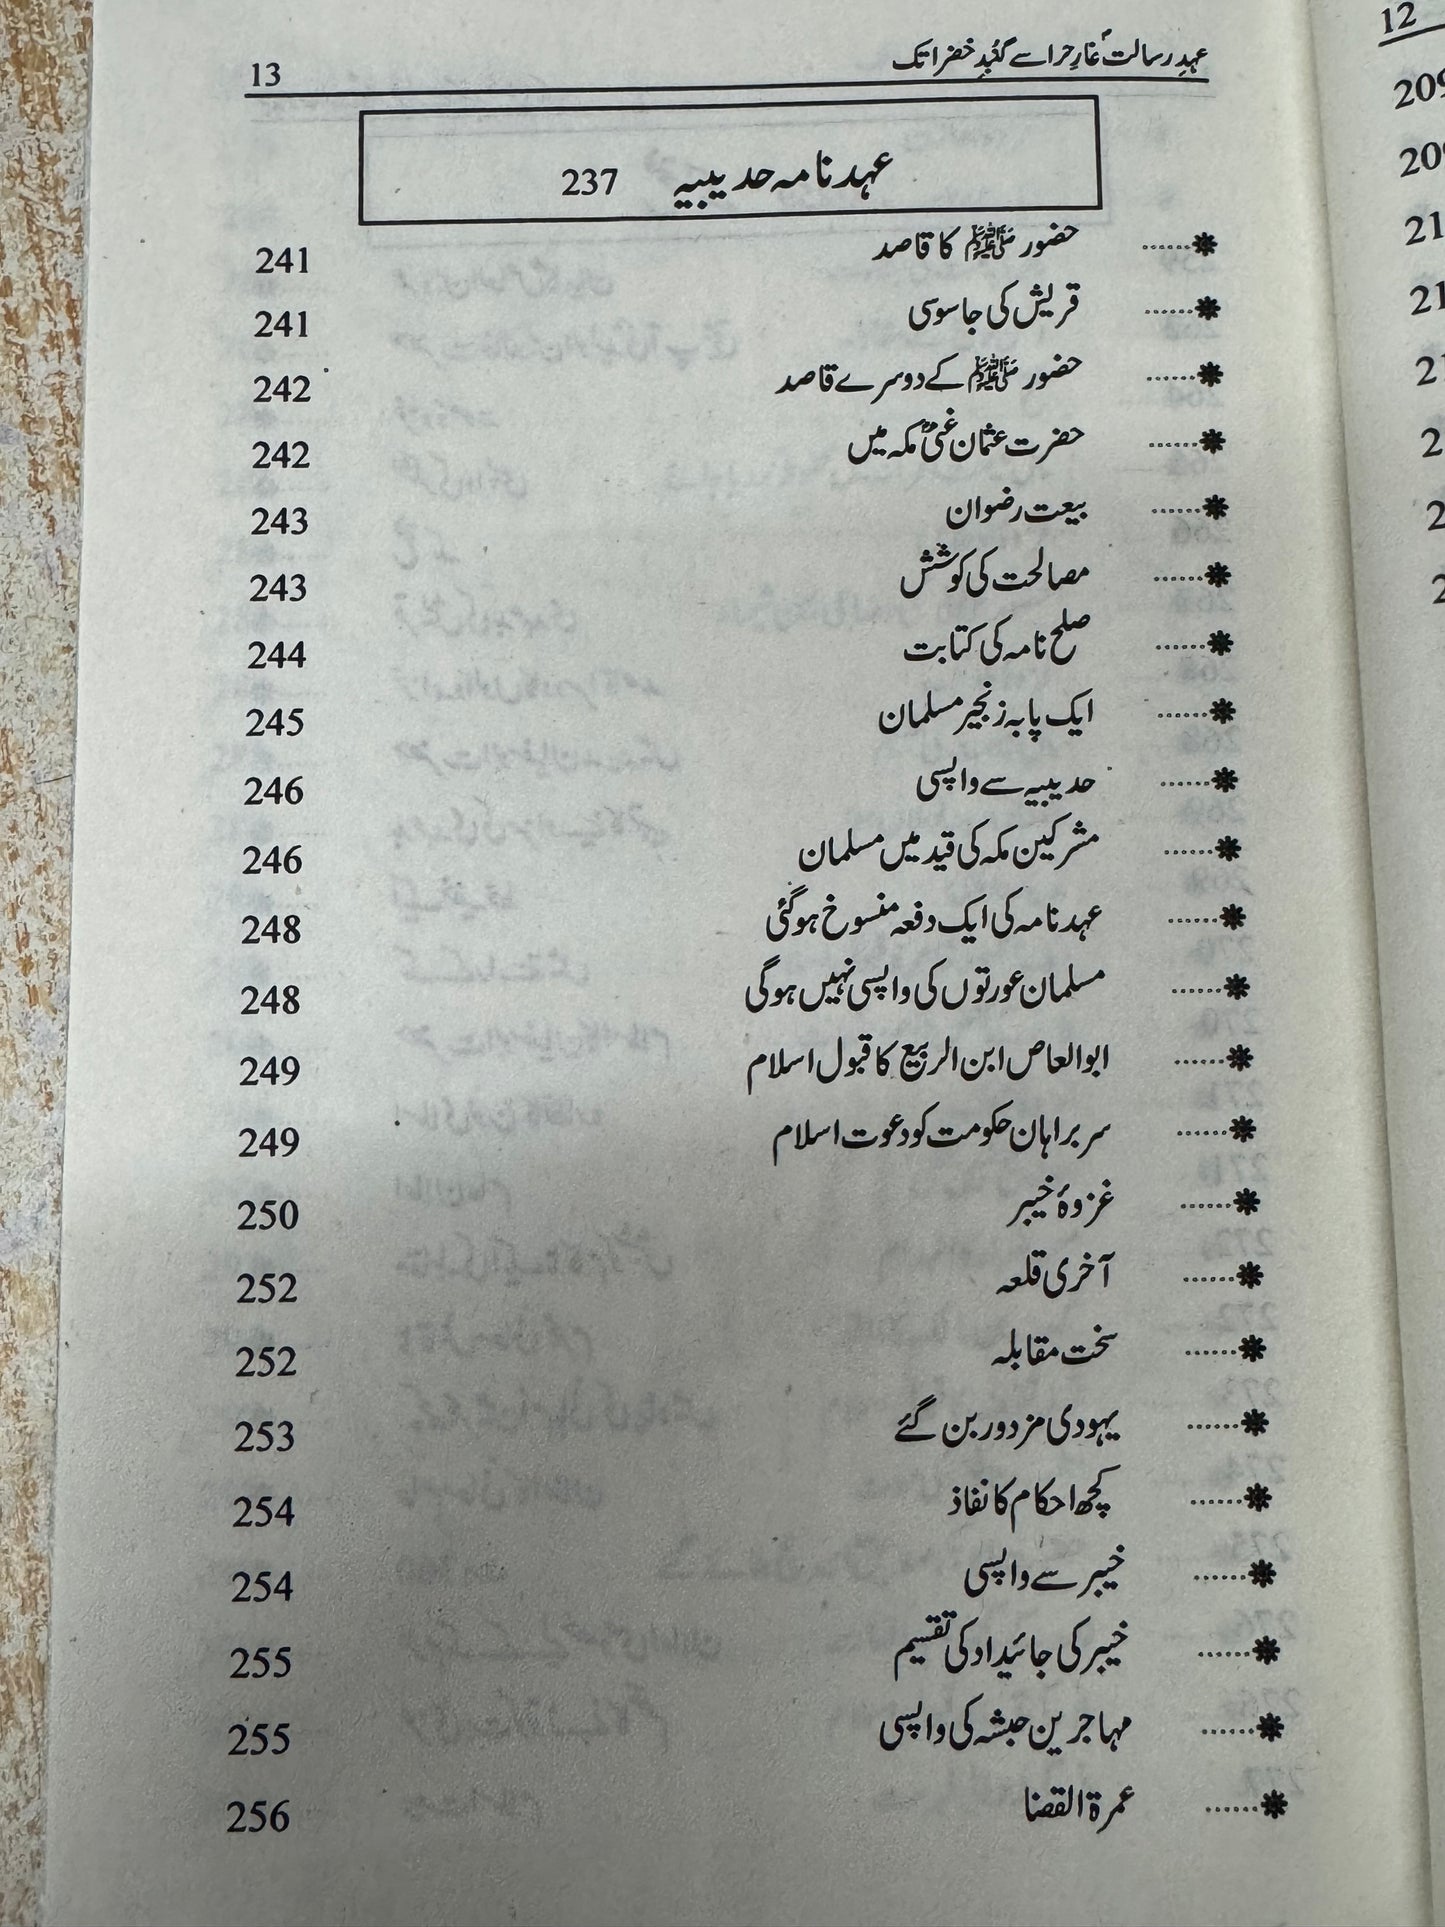 عہدِ رسالتؐ غارِ حرا سے گنبدِ خضرا تک 13
عہد نامہ حدیبیہ 237
❋...... حضور ﷺ کا قاصد 241
❋...... قریش کی جاسوسی 241
❋...... حضور ﷺ کے دوسرے قاصد 242
❋...... حضرت عثمان غنیؓ مکہ میں 242
❋...... بیعت رضوان 243
❋...... مصالحت کی کوشش 243
❋...... صلح نامہ کی کتابت 244
❋...... ایک پابہ زنجیر مسلمان 245
❋...... حدیبیہ سے واپسی 246
❋...... مشرکین مکہ کی قید میں مسلمان 246
❋...... عہد نامہ کی ایک دفعہ منسوخ ہوگئی 248
❋...... مسلمان عورتوں کی واپسی نہیں ہوگی 248
❋...... ابوالعاص ابن الربیع کا قبول اسلام 249
❋...... سربراہان حکومت کو دعوت اسلام 249
❋...... غزوۂ خیبر 250
❋...... آخری قلعہ 252
❋...... سخت مقابلہ 252
❋...... یہودی مزدور بن گئے 253
❋...... کچھ احکام کا نفاذ 254
❋...... خیبر سے واپسی 254
❋...... خیبر کی جائیداد کی تقسیم 255
❋...... مہاجرین حبشہ کی واپسی 255
❋...... عمرۃ القضا 256
12
209